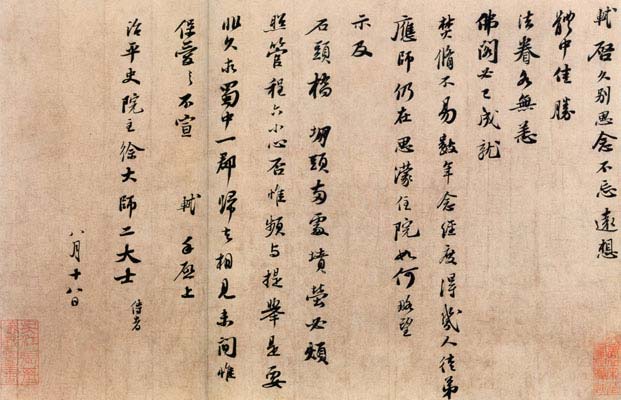 軾啓久別思念不忘遠想
體中佳勝
法眷各無恙
佛閣必已成就
焚脩不易數年念經度得幾人徒弟
應師仍在思濛住院如何略望
示及
石頭橋堋頭兩處墳塋必煩
照管程六小心否惟頻与提舉是要
非久求蜀中一郡歸去相見未間惟
保愛之不宣 軾手啓上
治平史院主徐大師二大士 侍者
八月十八日